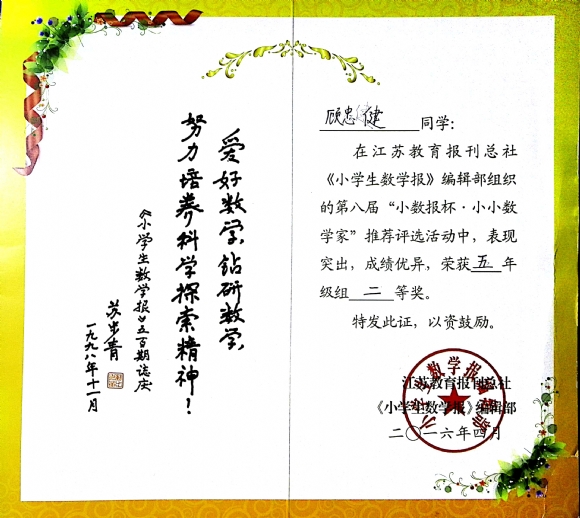 爱好数学、钻研数学、
努力培养科学探索精神！
《小学生数学报》五百期誌庆
苏步青
一九九八年十一月
顾忠健同学：
在江苏教育报刊总社
《小学生数学报》编辑部组织
的第八届“小数报杯·小小数
学家”推荐评选活动中，表现
突出，成绩优异，荣获五年
级组二等奖。
特发此证，以资鼓励。
江苏教育报刊总社
《小学生数学报》编辑部
二〇一六年四月
小学生数学报编辑部